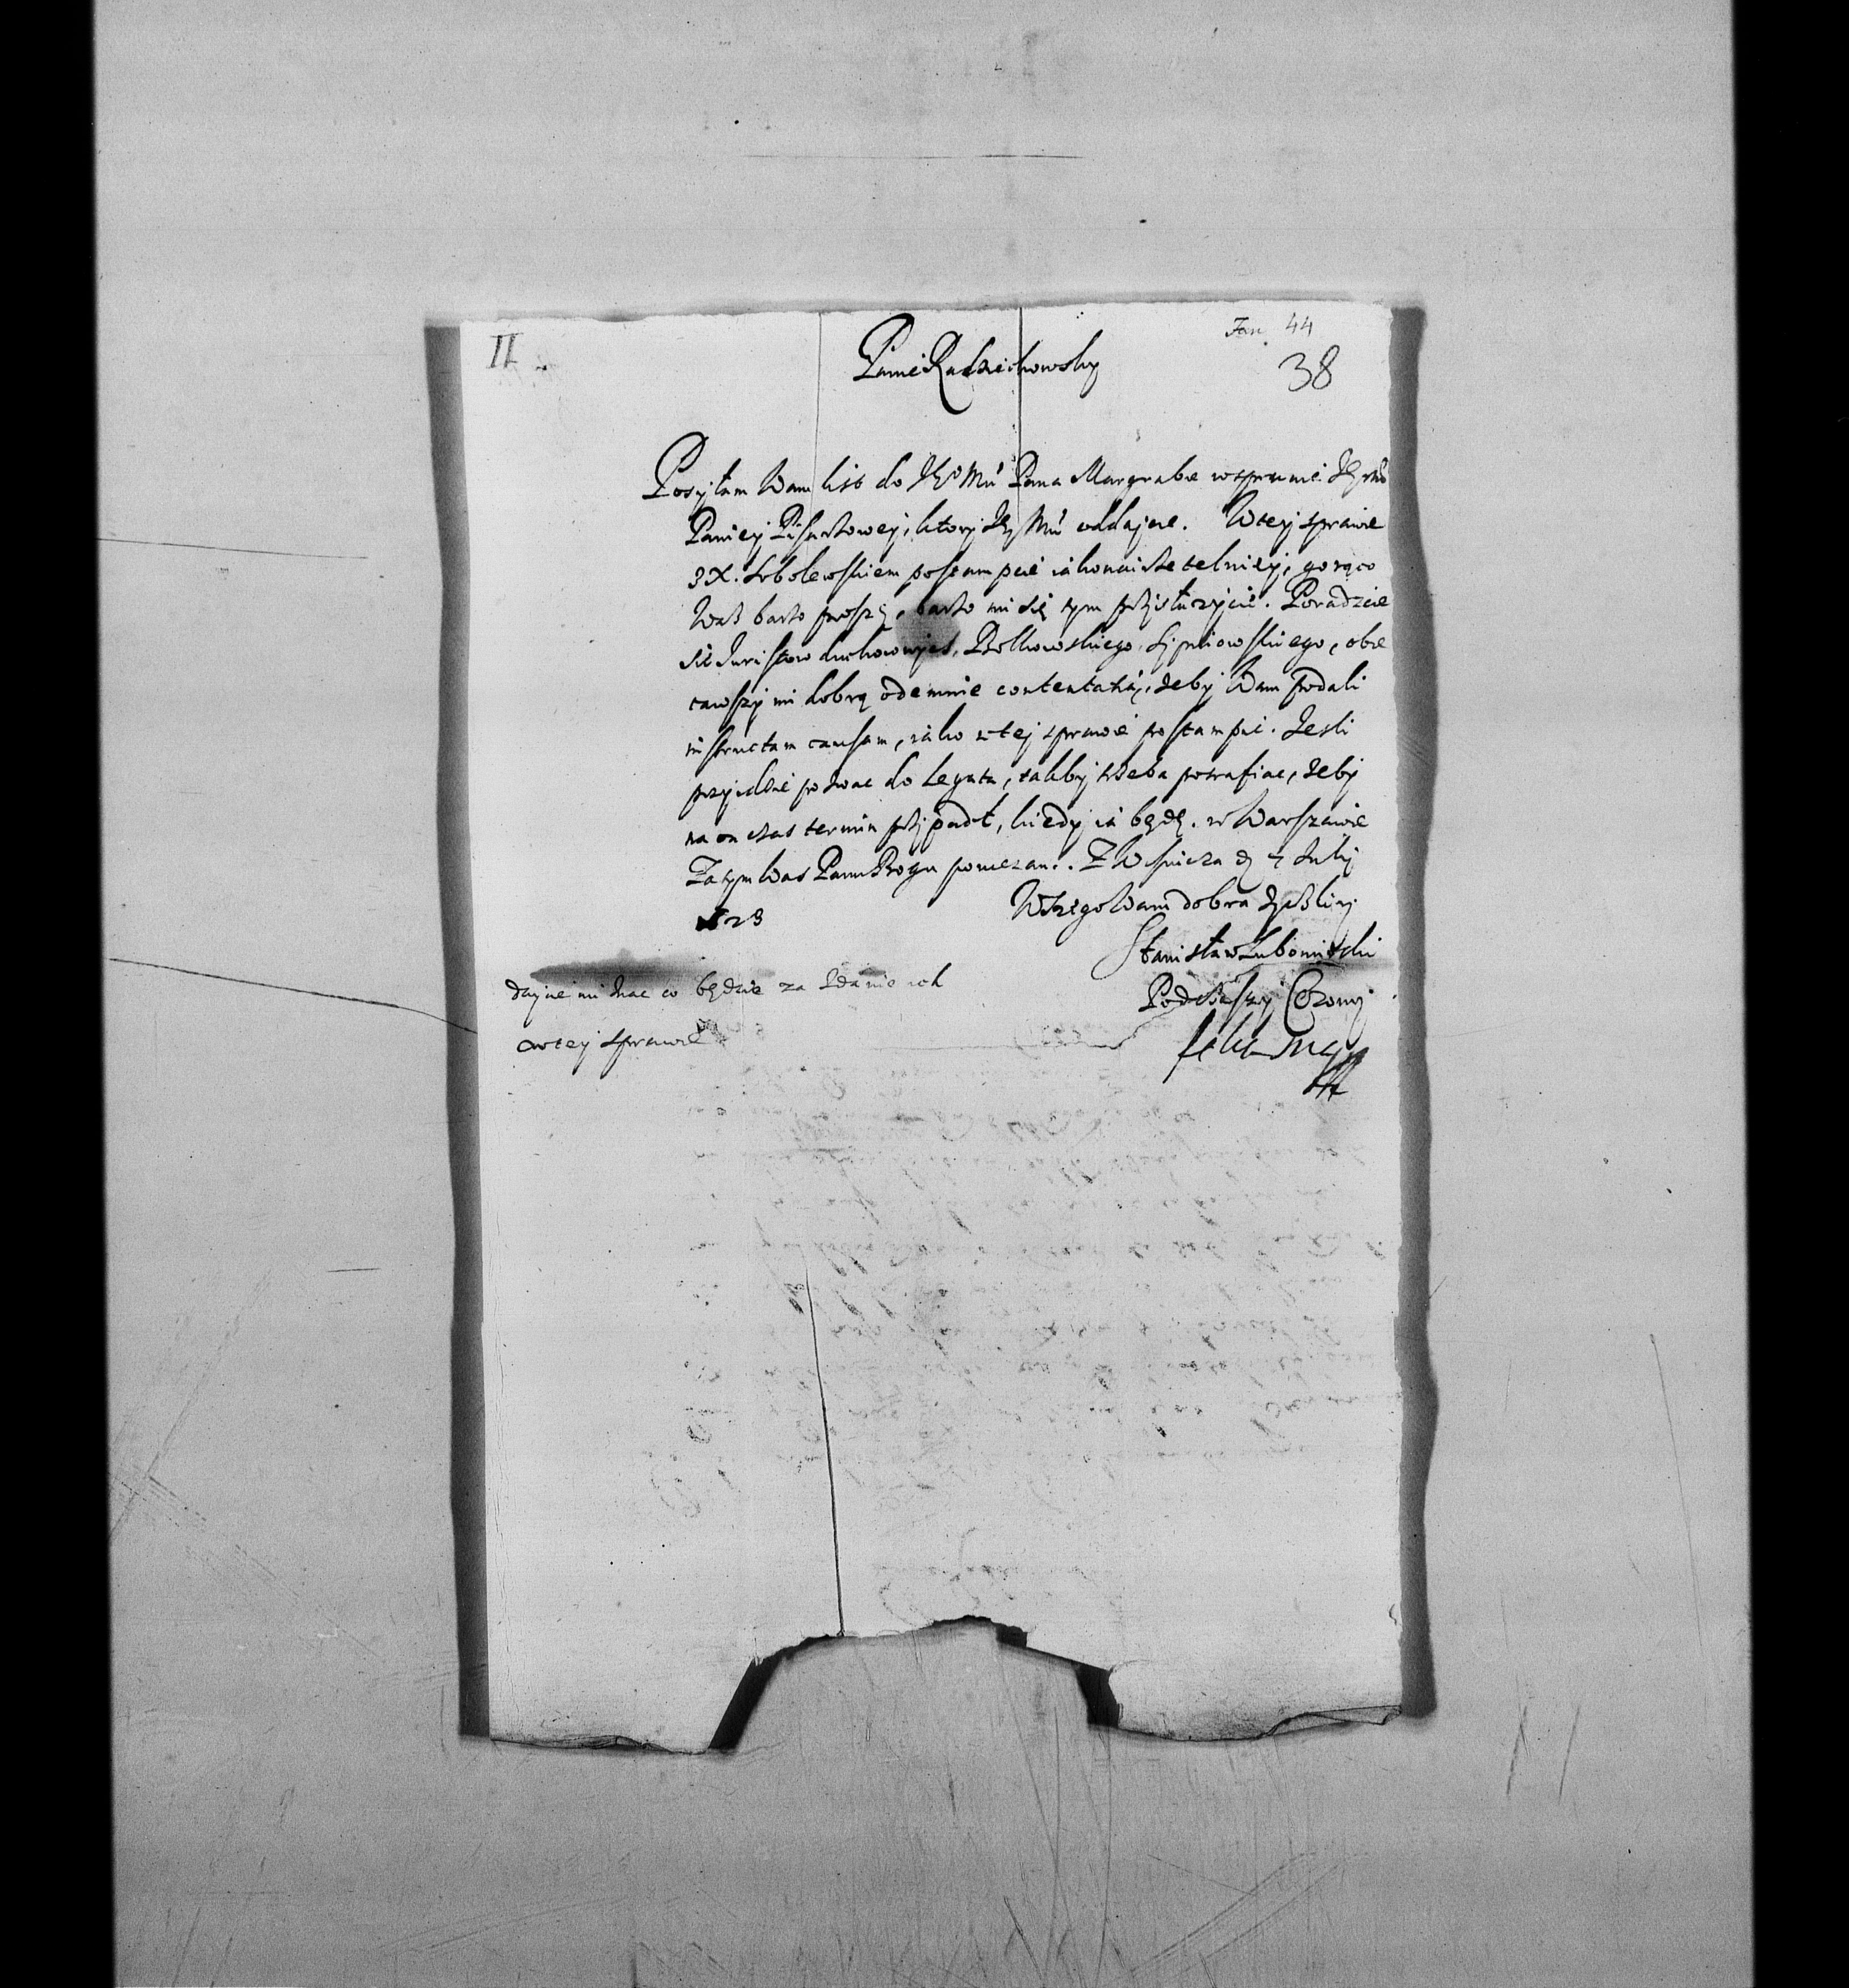 II.
Jan. 44
38
Panie Radziechowsky
Posyłam Wam list do Je° Mći Pana Margrabie wsprawie Jey Mći
Paniey Pisarzowey, ktory Je° Mći oddajcie. Wtey sprawie
z X. Sobolewskiem postampcie iako nairzetelniey, gorąco
Was barzo proszę, barzo mi się tym przysłuzycie. Poradzcie
się Juristow duchownych, Bolkowskiego, obie
cawszy im dobrą odemnie contentatią, zeby Wam podali
instructam causam, iako w tej sprawie postampic. Jesli
przydzie pozwac do Legata, takby trzeba potrafiac, zeby
na on czas termin przypadł, kiedy ia będę w Warszawie
Zatym Was Panu Bogu poruczam. Z Wisnicza d 7 July
1623
Wszego Wam dobra zyczliwy
Stanisław Lubomirski
Podczaszy Coronny
dajcie mi znac co będzie za zdanie ich
w tey sprawie